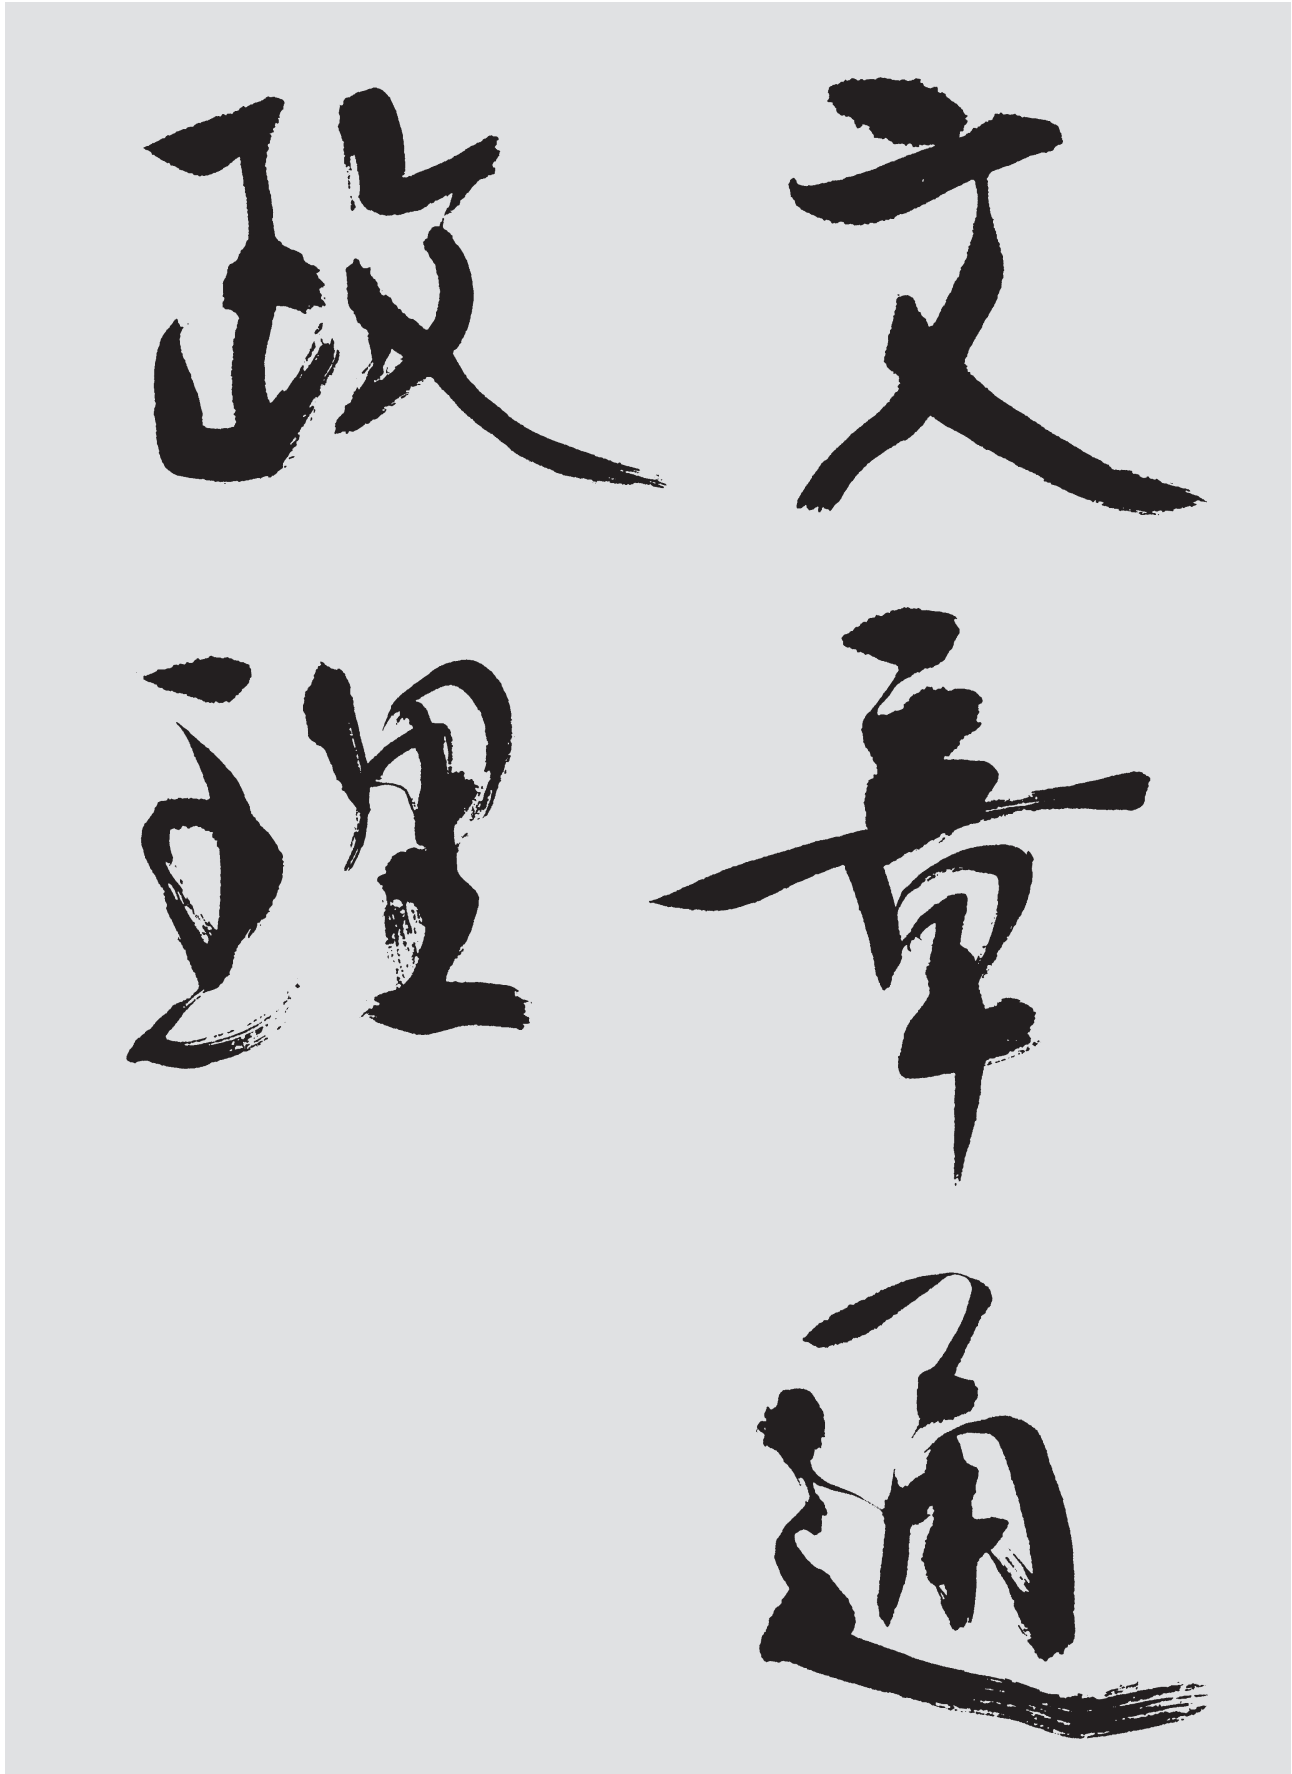 文章通
政理